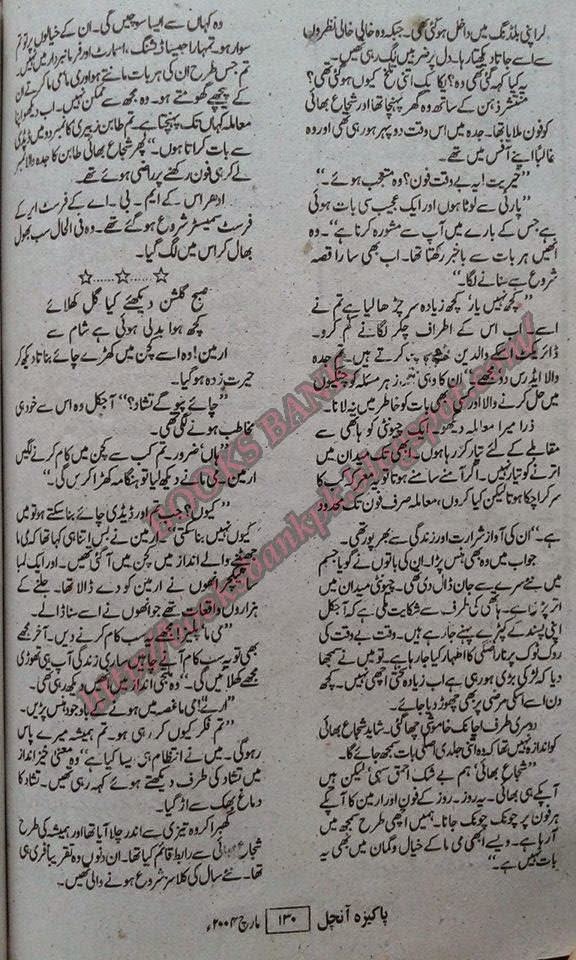 کر اپنی بلڈنگ میں داخل ہو گئی تھی۔ جبکہ وہ خالی خالی نظروں
سے اسے جاتا دیکھتا رہا۔ دل پر ضرب لگ رہی تھیں۔
یہ کیا کہہ گئی تھی وہ؟ یکایک اتنی تلخ کیوں ہو گئی تھی؟
منتشر ذہن کے ساتھ وہ گھر پہنچا تھا اور شجاع بھائی
کو فون ملایا تھا۔ جدہ میں اس وقت دوپہر ہو رہی تھی اور وہ
غالباً اپنے آفس میں تھے۔
”خیریت! یہ بے وقت فون؟ وہ متعجب ہوئے۔“
”پارٹی سے لوٹا ہوں اور ایک عجیب سی بات ہوئی
ہے جس کے بارے میں آپ سے مشورہ کرنا ہے۔“ وہ
انھیں ہر بات سے باخبر رکھتا تھا۔ اب بھی سارا قصہ
شروع سے سنانے لگا۔“
”کچھ نہیں یار‘ کچھ زیادہ سر چڑھا لیا ہے تم نے
اسے۔ اب اس کے اطراف چکر لگانے کم کرو۔
ڈائریکٹ اسکے والدین سے کرتے ہیں۔ تم جدہ
والا ایڈریس دو مجھے۔“ ان کا وہی ہر مسئلہ کو چٹکیوں
میں حل کرنے والا اور کسی بھی بات کو خاطر میں نہ لانا۔
ذرا میرا معاملہ دیکھو۔ ایک چیونٹی کو ہاتھی سے
مقابلے کے لئے تیار کر رہا ہوں۔ ابھی تک میدان میں
اترنے کو تیار نہیں۔ اگر آمنے سامنے ہوتا تو یہ معرکہ کب کا
سر کرا چکا ہوتا لیکن کیا کروں‘ معاملہ صرف فون تک محدود
ہے۔“ ان کی آواز شرارت اور زندگی سے بھرپور تھی۔
جواب میں وہ بھی ہنس پڑا۔ ان کی باتوں نے گویا جسم
میں نئے سرے سے جان ڈال دی تھی۔ چیونٹی میدان میں
اتر پڑا ہے۔ ہاتھی کی طرف سے شکایت ملی ہے کہ آجکل
اپنی پسند کے کپڑے پہنے جا رہے ہیں۔ وقت بے وقت کی
روک ٹوک پر ناراضگی کا اظہار کیا جا رہا ہے۔ تو میں نے سمجھا
دیا کہ لڑکی بڑی ہو رہی ہے اب زیادہ سختی اچھی نہیں۔ کچھ
دن اسے اسکی مرضی پر بھی چھوڑ دیا جائے۔
دوسری طرف اچانک خاموشی چھا گئی۔ شاید شجاع بھائی
کو اندازہ نہیں تھا کہ وہ اتنی جلدی اصلی بات سمجھ جائے گا۔
”شجاع بھائی‘ ہم بے شک احمق سہی لیکن ہیں
آپکے ہی بھائی۔ یہ روز۔ روز کے فون اور ارمین کا آپکے
ہر فون پر چونک چونک جانا۔ ہمیں اچھی طرح سمجھ میں
آ رہا ہے۔ ویسے ابھی می ما کے خیال و گمان میں بھی یہ
بات نہیں ہے“
وہ کہاں سے ایسا سوچیں گی۔ ان کے خیالوں پر تو تم
سوار ہو۔ تمہارا جیسا ڈشنگ‘ اسمارٹ اور فرمانبردار میں نہیں۔
تم جس طرح ان کی ہر بات مانتے ہو اور می ما می ما کرتے ان
کے پیچھے گھومتے ہو۔ وہ مجھ سے ممکن نہیں۔ اب دیکھو اپنا
معاملہ کہاں تک پہنچتا ہے۔ تم طاہن زبیری کا نمبر دو میں ڈیڈی
سے بات کراتا ہوں۔“ پھر شجاع بھائی طاہن کا جدہ والا نمبر
لے کر ہی فون رکھنے پر راضی ہوئے تھے۔
ادھر اس کے ایم۔ بی۔ اے کے فرسٹ ایئر کے
فرسٹ سمیسٹر شروع ہو گئے تھے۔ وہ فی الحال سب بھول
بھال کر اس میں لگ گیا۔
☆……☆……☆
صبح گلشن دیکھئے کیا گل کھلائے
کچھ ہوا بدلی ہوئی ہے شام سے
ارمین! وہ اسے کچن میں کھڑے چائے بناتا دیکھ کر
حیرت زدہ ہو گیا۔
”چائے پیو گے نشاد؟“ آجکل وہ اس سے خود ہی
مخاطب ہونے لگی تھی۔
”ہاں‘ ضرور۔ تم کب سے کچن میں کام کرنے لگیں
ارمین۔ می ما نے دیکھ لیا تو ہنگامہ کھڑا کر دیں گی۔“
”کیوں؟ جب تم اور ڈیڈی چائے بنا سکتے ہو تو میں
کیوں نہیں بنا سکتی“ ارمین نے بس اتنا ہی کہا تھا کہ می ما
جھپٹنے والے انداز میں کچن میں آ گئی تھیں۔ اور ایک لمبا
لیکچر انھوں نے ارمین کو دے ڈالا تھا۔ جلنے کے
ہزاروں واقعات تھے جو انھوں نے اسے سنا ڈالے۔
”می ما پلیز! مجھے سب کام کرنے دیں۔ آخر مجھے
بھی تو یہ سب کام آنے چاہیں۔ ساری زندگی آپ ہی تھوڑی
مجھے کھلائیں گی۔“ وہ ملتجی انداز میں انھیں دیکھ رہی تھی۔
”ارے! می ما غصہ میں ہونے کے باوجود ہنس پڑیں۔
”تم فکر کیوں کر رہی ہو۔ تم ہمیشہ میرے پاس
رہو گی۔ میں نے انتظام ہی ایسا کیا ہے“ وہ معنی خیز انداز
میں نشاد کی طرف دیکھتے ہوئے کہہ رہی تھیں۔ نشاد کا
دماغ بھک سے اڑ گیا۔
گھبرا کر وہ تیزی سے اندر چلا آیا تھا اور ہمیشہ کی طرح
شجاع بھائی سے رابطہ قائم کیا تھا۔ ان دنوں وہ تقریباً فری ہی
تھا۔ نئے سال کی کلاسز شروع ہونے والی تھیں۔
BOOKS BANK
پاکیزہ آنچل ۱۳۰ مارچ ۲۰۰۴ء